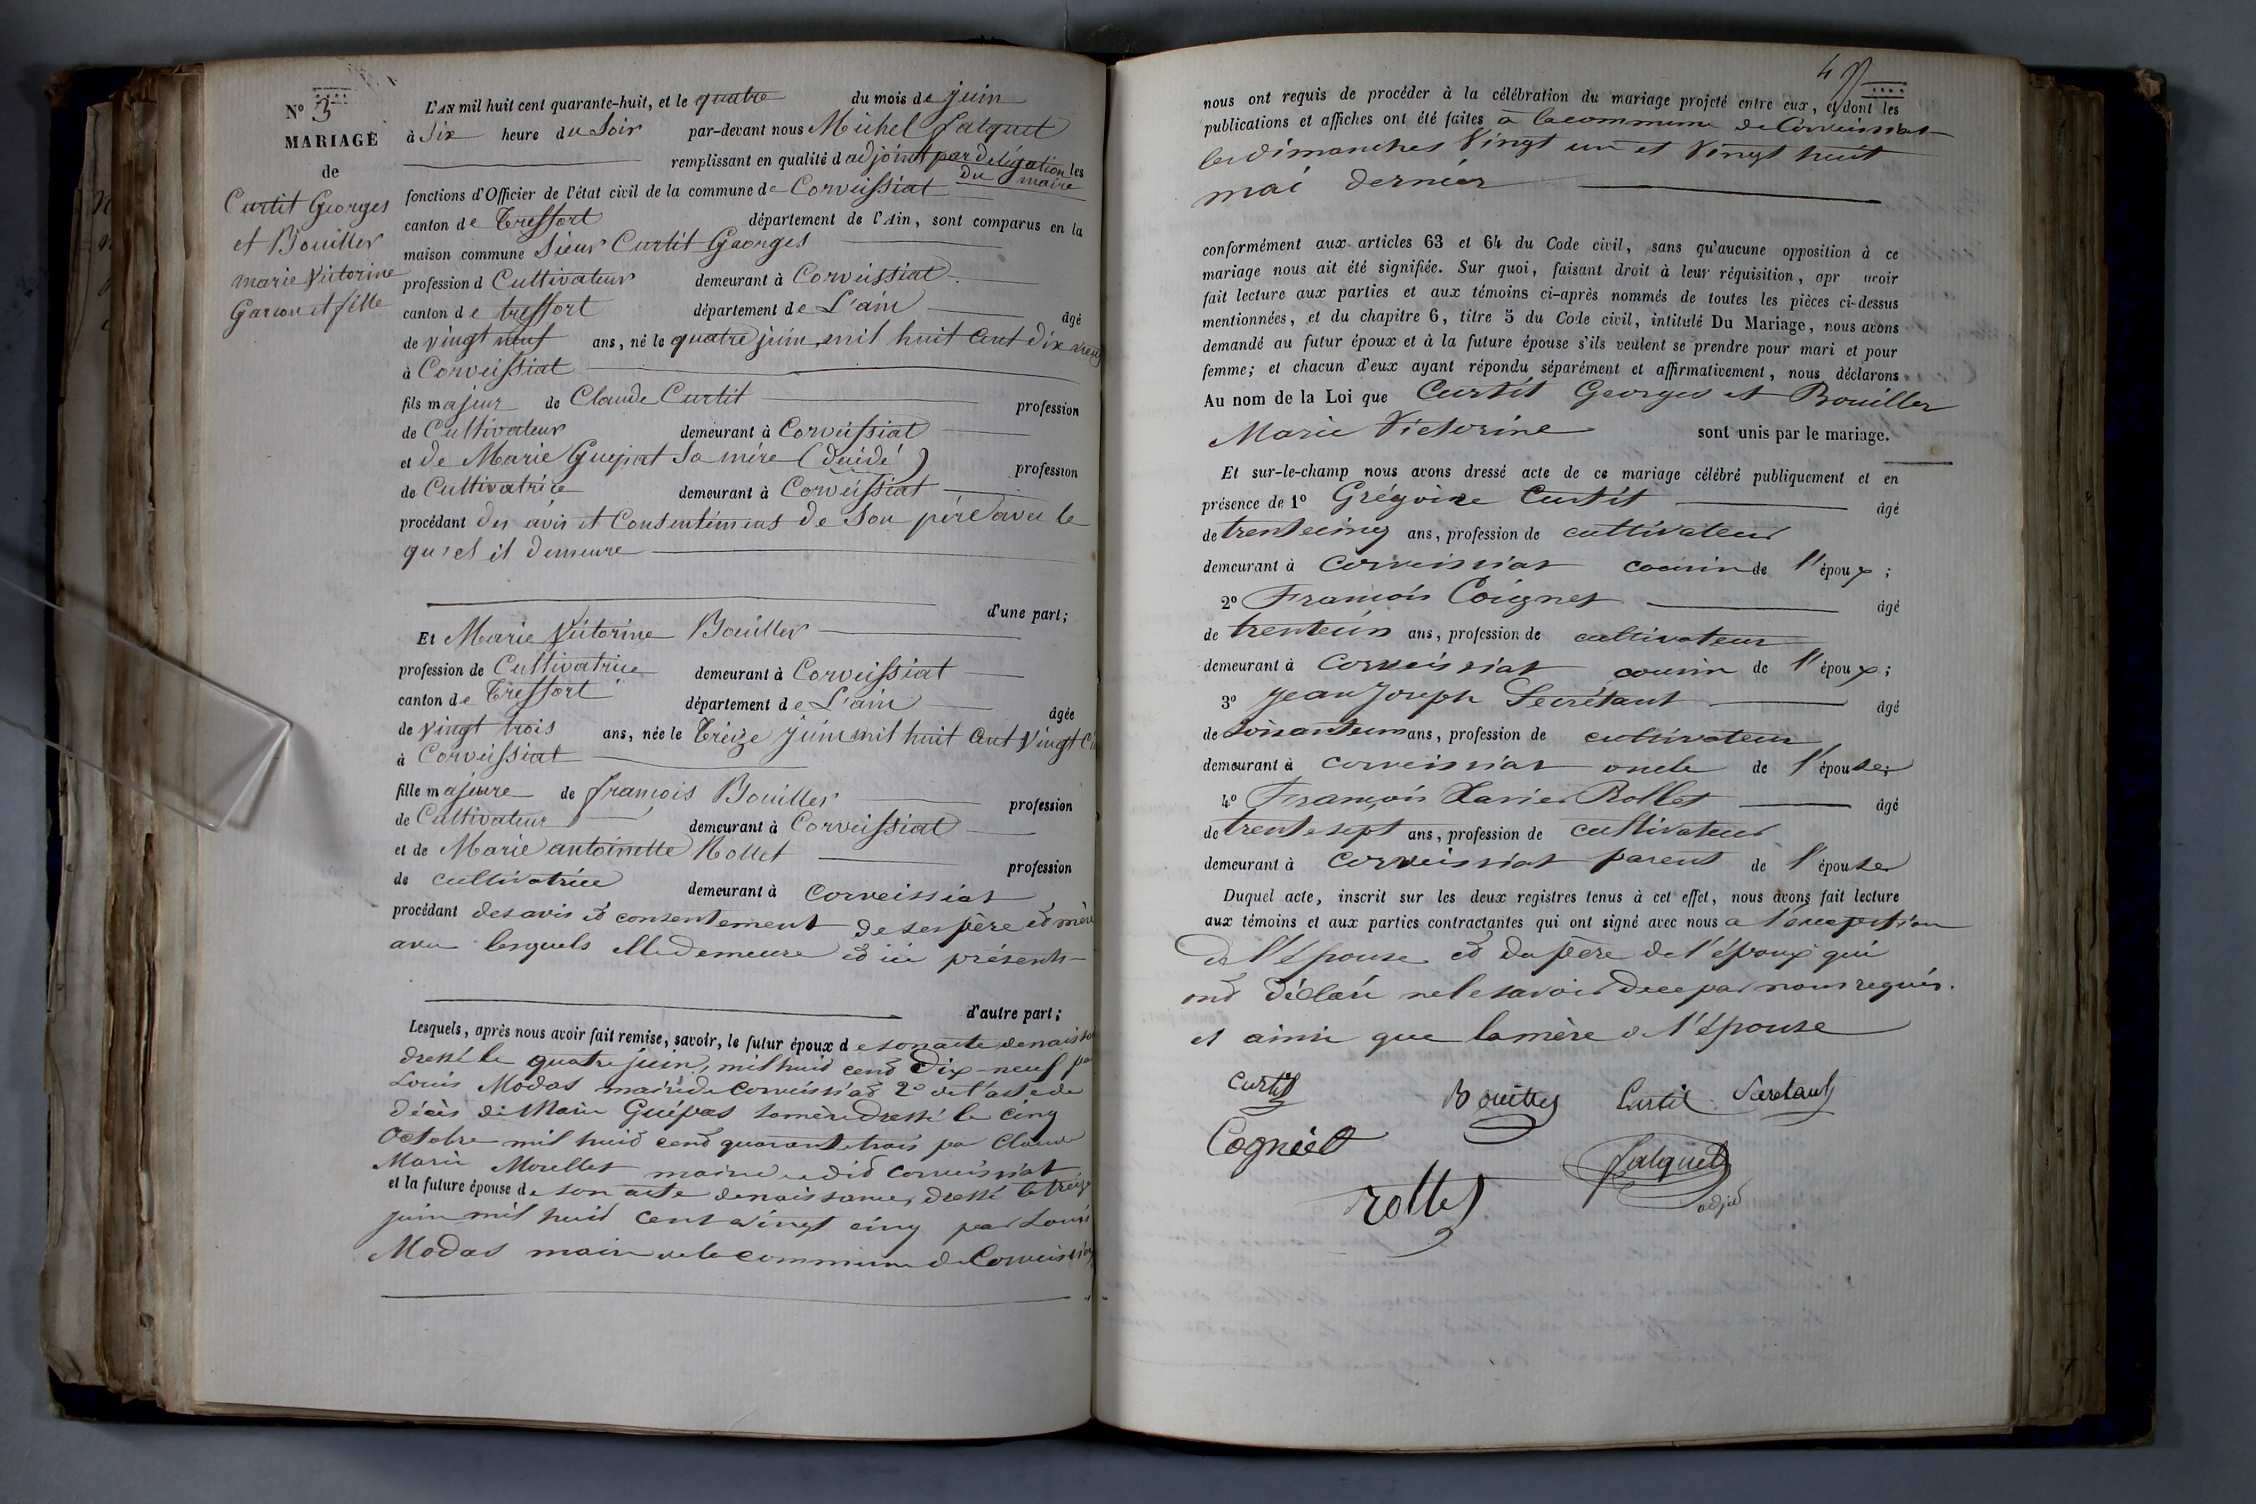 N° 3
MARIAGE
de
Curtit Georges
et Bouiller
marie Victorine
Garcon et fille
L'AN mil huit cent quarante-huit, et le quatre du mois de juin
à Six heure du Soir par-devant nous Michel Falquet
remplissant en qualité d adjoint par délégation les
du maire
fonctions d'Officier de l'état civil de la commune de Corveissiat
canton de Treffort département de l'Ain, sont comparus en la
maison commune Sieur Curtit Georges
profession d Cultivateur demeurant à Corveissiat
canton de treffort département de L'ain âgé
de vingt neuf ans, né le quatre juin mil huit cent dix neuf
à Corveissiat
fils majeur de Claude Curtit profession
de Cultivateur demeurant à Corveissiat
et de Marie Gueprat Sa mère (décédé) profession
de Cultivatrice demeurant à Corveissiat
procédant des avis et Consentemens de Son père avec le
quel il demeure
d'une part;
Et Marie Victorine Bouiller
profession de Cultivatrice demeurant à Corveissiat
canton de Treffort département de L'ain âgée
de vingt trois ans, née le Treize juin mil huit cent vingt
à Corveissiat
fille majeure de françois Bouiller profession
de Cultivateur demeurant à Corveissiat
et de Marie antoinette Rollet profession
de cultivatrice demeurant à corveissiat
procédant des avis et consentement de ses père et mère
avec lesquels elle demeure et ici présents
d'autre part;
Lesquels, après nous avoir fait remise, savoir, le futur époux de son acte de naissance
dressé le quatre juin, mil huit cent Dix-neuf par
Louis Modas maire de corveissiat 2° de l'acte de
décès de Marie Guépras sa mère dressé le cinq
Octobre mil huit cent quarante trois par Claude
Marie Morellet maire dudit corveissiat
et la future épouse de son acte de naissance, dressé le treize
juin mil huit cent vingt cinq par Louis
Modas maire de la commune de Corveissiat
4
nous ont requis de procéder à la célébration du mariage projeté entre eux, et dont les
publications et affiches ont été faites à la commune de Corveissiat
les dimanches Vingt un et Vingt huit
mai dernier
conformément aux articles 63 et 64 du Code civil, sans qu'aucune opposition à ce
mariage nous ait été signifiée. Sur quoi, faisant droit à leur réquisition, apr avoir
fait lecture aux parties et aux témoins ci-après nommés de toutes les pièces ci-dessus
mentionnées, et du chapitre 6, titre 5 du Code civil, intitulé Du Mariage, nous avons
demandé au futur époux et à la future épouse s'ils veulent se prendre pour mari et pour
femme; et chacun d'eux ayant répondu séparément et affirmativement, nous déclarons
Au nom de la Loi que Curtit Georges et Bouiller
Marie Victorine sont unis par le mariage.
Et sur-le-champ nous avons dressé acte de ce mariage célébré publiquement et en
présence de 1° Grégoire Curtit âgé
de trente cinq ans, profession de cultivateur
demeurant à corveissiat cousin de l'époux;
2° François Coignet âgé
de trente un ans, profession de cultivateur
demeurant à corveissiat cousin de l'époux;
3° Jean Joseph Secrétant âgé
de soixante un ans, profession de cultivateur
demeurant à corveissiat oncle de l'épouse;
4° François Xavier Rollet âgé
de trente sept ans, profession de cultivateur
demeurant à corveissiat parent de l'épouse
Duquel acte, inscrit sur les deux registres tenus à cet effet, nous avons fait lecture
aux témoins et aux parties contractantes qui ont signé avec nous a l'exception
de l'épouse et du père de l'époux qui
ont déclaré ne le savoir de ce par nous requis.
et ainsi que la mère de l'épouse
curtit
Bouiller
Curtit
Secretant
Cogniet
rollet
falquet
adjt